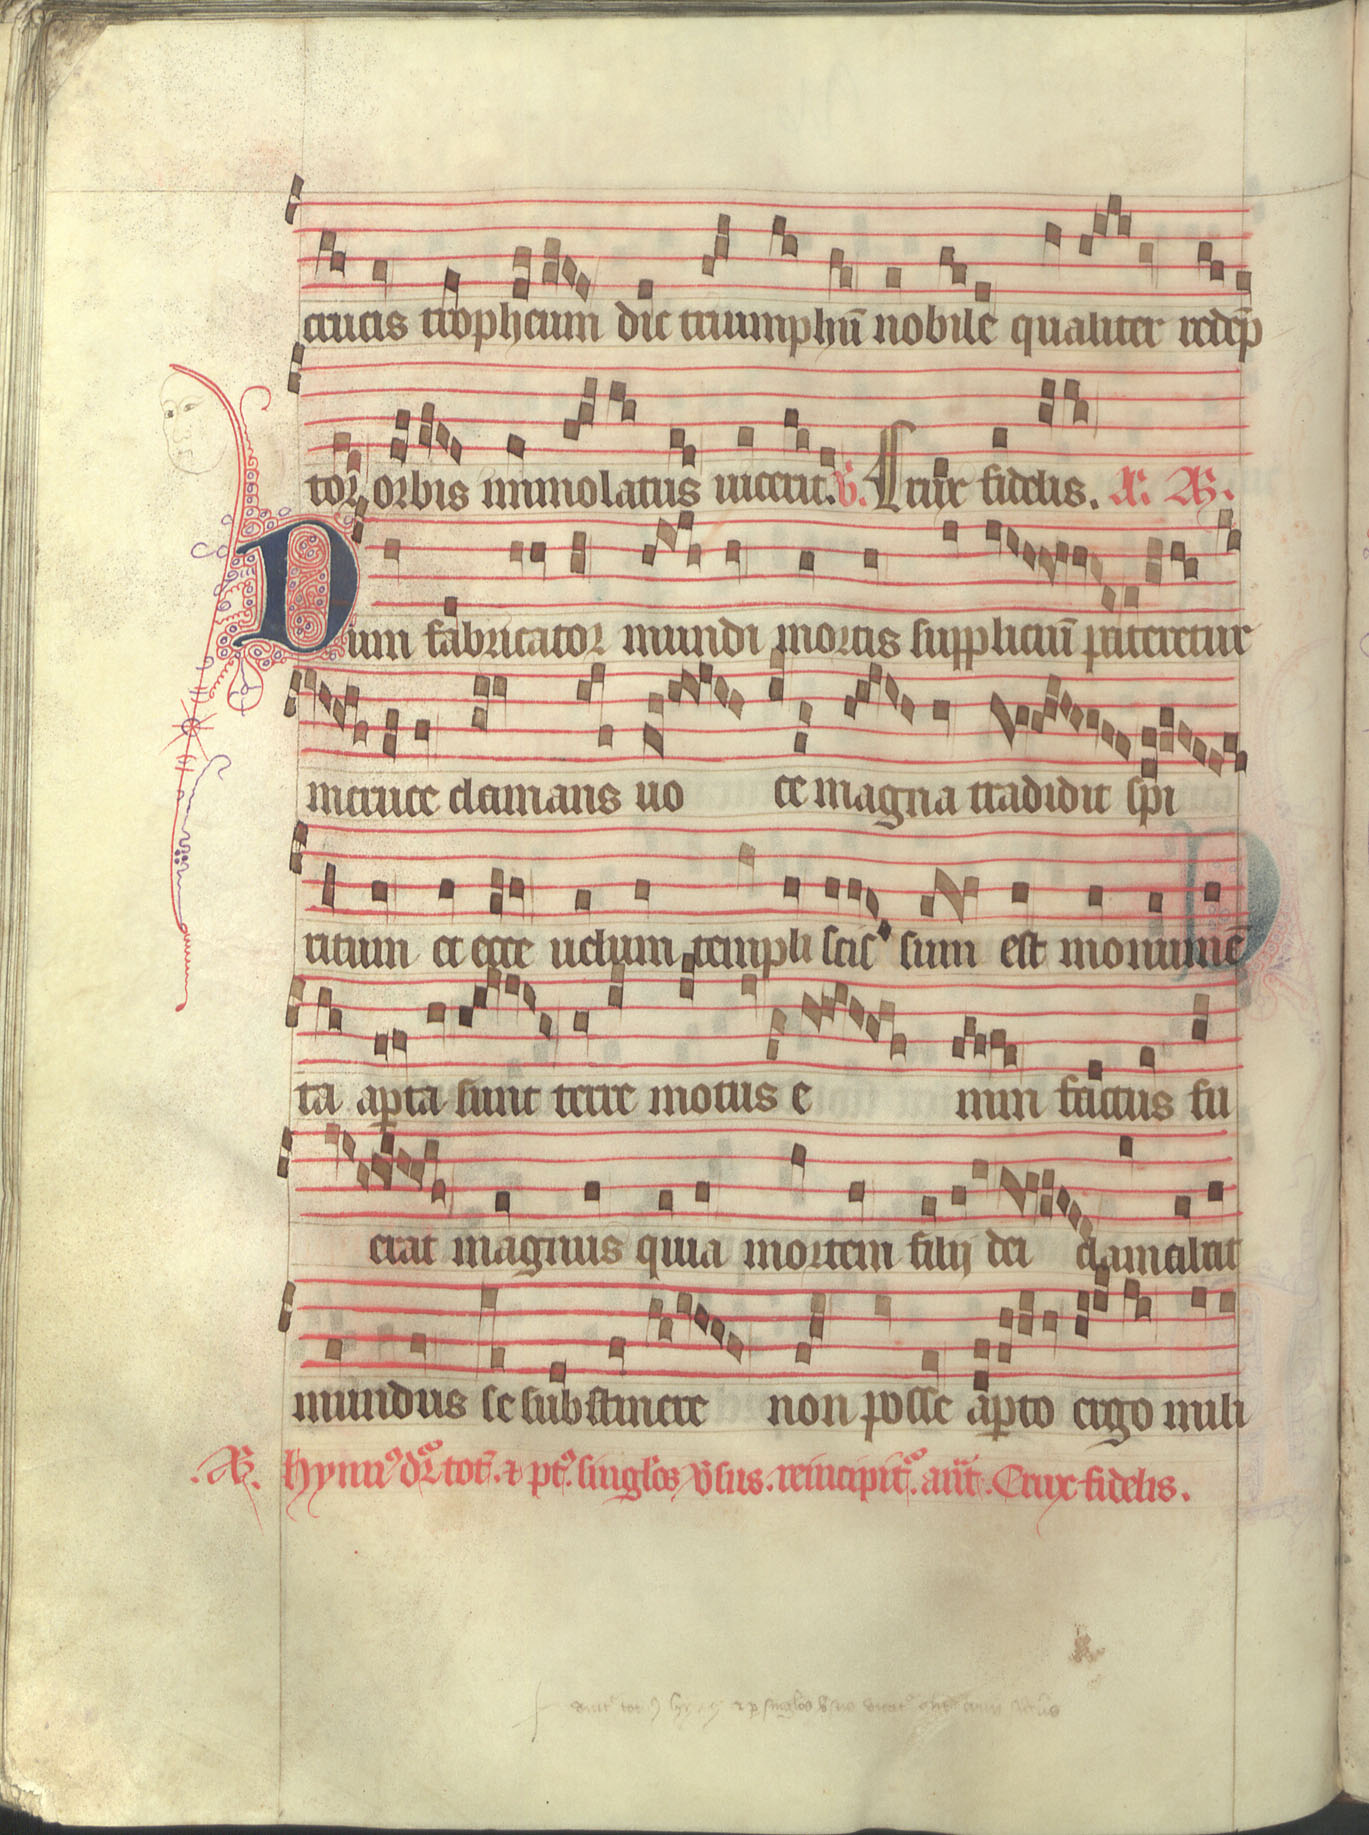 crucis tropheum dic triumphū nobile qualiter redēp
tor orbis immolatus uicerit. v̄. Crux fidelis.
Dum fabricator mundi mortis suppliciū pateretur
in cruce clamans uo ce magna tradidit spi
ritum et ecce uelum templi scis sum est monumē
ta aꝑta sunt terre motus e nim factus fu
erat magnus quia mortem filij dei clamabat
mundus se substinere non posse aꝑto ergo mili
hymnꝰ dr̄ totꝰ. et pꝰ. singlos v̄sus. reincipitᷣ. añt. Crux fidelis.